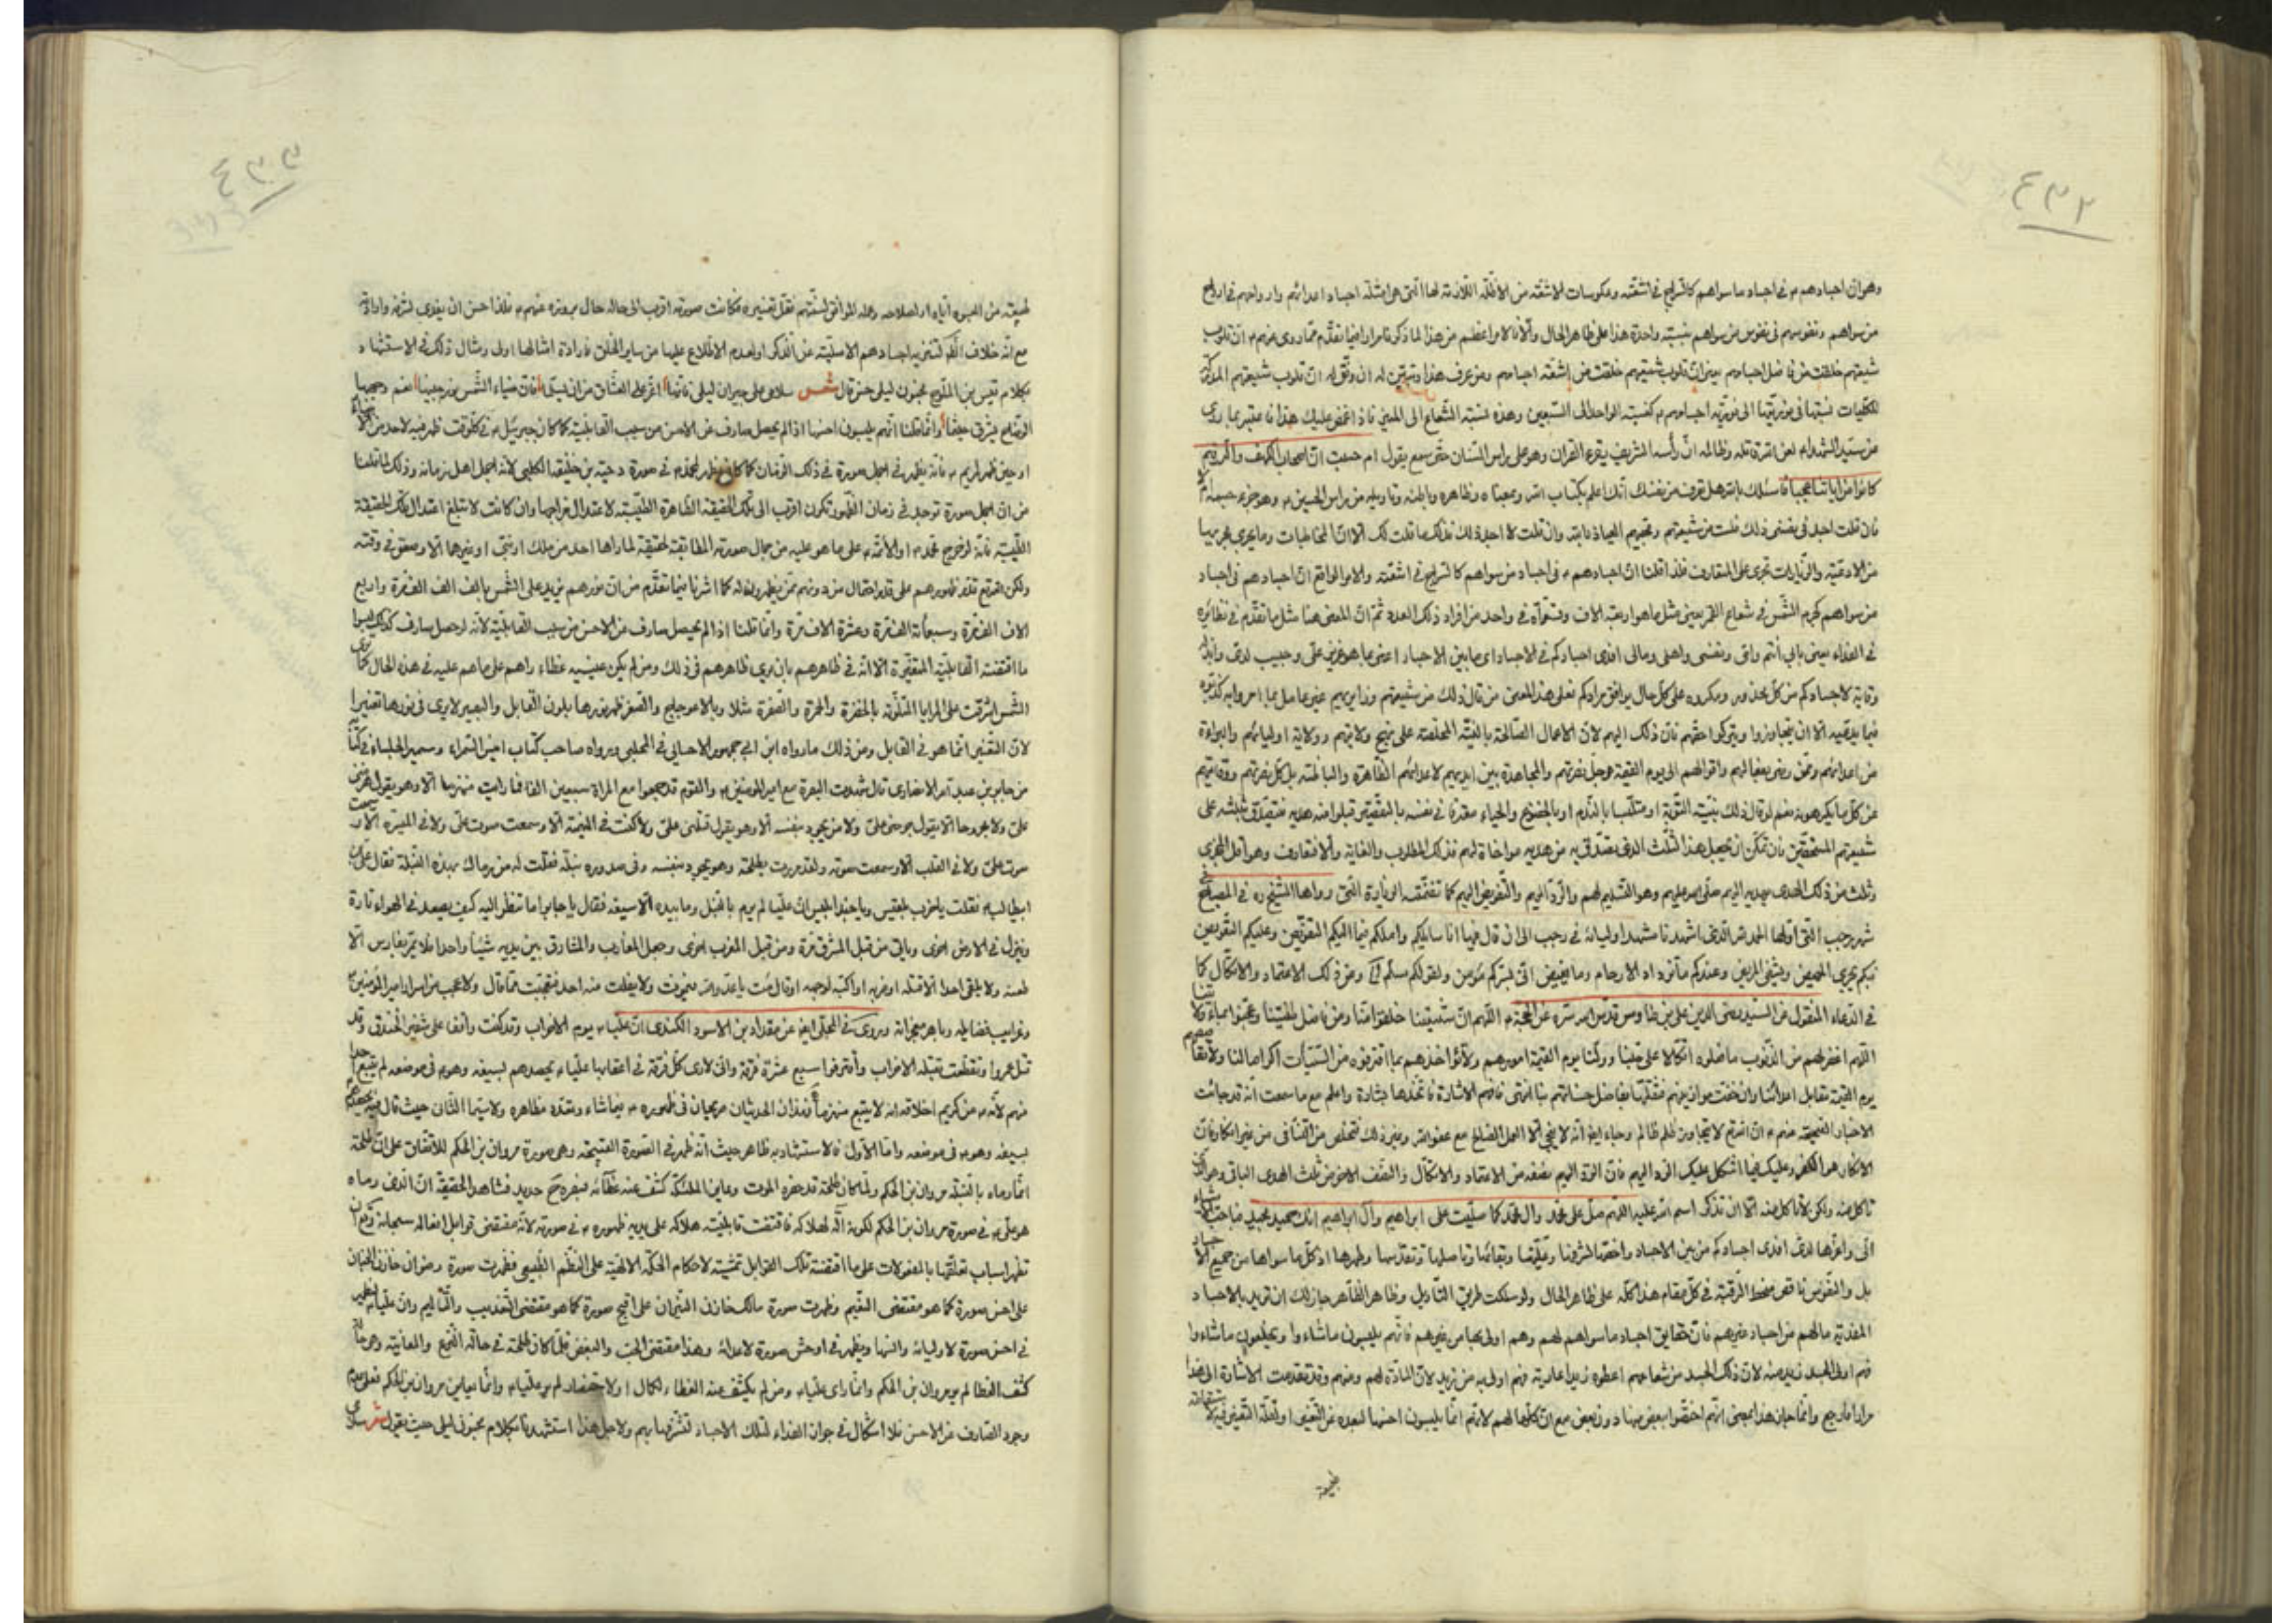 ٤٣٢
وهو ان اجسادهم ۴ في اجساد ما سواهم كالسراج في اشعته وعكوسات الاشعته من الاظلة اللازمة لها التي هي امثلة اجساد اعدائهم وارواحهم في ارواح
من سواهم ونفوسهم في نفوس من سواهم بنسبته واحدة هذا على ظاهر الحال والا فالامر اعظم من هذا لما ذكرنا مرارا فيما تقدم مما روى عنهم ۴ ان قلوب
شيعتهم خلقت من فاضل اجسادهم يعني ان قلوب شيعتهم خلقت من اشعته اجسادهم ومن عرف هذا وتبين له ان
نسبتها في نوريتها الى نورية اجسادهم ۴ كنسبة الواحد الى السبعين وهذه نسبة الشعاع الى المنير فاذا غمض عليك هذا فاعتبر بما روى
عن سيد الشهداء لعن الله قاتله وظالمه ان رأسه الشريف يقرء القران وهو على راس السنان حتى سمع يقول ام حسبت ان اصحاب الكهف والرقيم
كانوا من اياتنا عجبا فاسئلك بالله هل تعرف من نفسك انك اعلم بكتاب الله ومعناه وظاهره وباطنه وتاويله من راس الحسين ۴ وهو جزء
فان قلت اجد في نفسي ذلك فلست من شيعتهم ومحبيهم العياذ بالله وان قلت لا اجد ذلك فذلك ما قلت لك الا ان المخاطبات وما يجري مجريها
من الادعية والزيارات تجرى على المتعارف فلذا قلنا ان اجسادهم ۴ في اجساد من سواهم كالسراج في اشعته والامر الواقع ان اجسادهم في اجساد
من سواهم كجرم الشمس في شعاع القمر يعني مثل ما هو اربعة الاف وتسعمأة في واحد من افراد ذلك العدد ثم ان المعنى هنا مثل ما تقدم في نظائره
في الفداء يعني بابي انتم وامي ونفسي واهلي ومالي افدى اجسادكم في الاجساد اى ما بين الاجساد اعنى ما هو عزيز علي وحبيب لدى وابذله
وقاية لاجسادكم من كل محذور ومكروه على كل حال يوافق مرادكم فعلى هذا المعنى من قال ذلك من شيعتهم
الا ان يتجاوزوا ويتركوا حقهم فان ذلك اليهم لان الاعمال الصالحة بالنية الخالصة على نهج ولايتهم وولاية اوليائهم والبراءة
من اعدائهم وممن رضى بفعالهم واقوالهم الى يوم القيمة هو جل نصرتهم والمجاهدة بين ايديهم لاعدائهم الظاهرة والباطنة بل كل نصرتهم ووقايتهم
من كل ما يكرهون نعم لو قال ذلك بنية التوبة او متلبسا بالندم او بالخضوع والحياء مقرا في نفسه بالتقصير قبلوا منه هديه فتصدق بثلثه على
شيعتهم المستحقين فان تمكن ان يجعل هذا الثلث الذى تصدق به من هديه مواخاة لهم فذلك المطلوب والغاية والا فتعارف وهو اقل المجزى
وثلث من ذلك الهدى يهديه اليهم صلى الله عليهم وهو التسليم لهم والرد اليهم والتفويض اليهم كما تضمنته الزيارة التي رواها الشيخ ره في المصباح
شهر رجب التي اولها الحمد لله الذى اشهدنا مشهد اوليائه في رجب الى ان قال فيها انا سائلكم واملكم فيما اليكم التفويض وعليكم التعويض
فبكم يجبر المهيض ويشفى المريض وعندكم ما تزداد الارحام وما تغيض انى لسركم مؤمن ولقولكم مسلم الخ ومن ذلك الاعتماد والاتكال كما
في الدعاء المنقول عن السيد رضى الدين على بن طاوس قدس الله سره عن الحجة ۴ اللهم ان شيعتنا خلقوا منا ومن فاضل طينتنا وعجنوا بماء ولايتنا
اللهم اغفر لهم من الذنوب ما فعلوه اتكالا على حبنا وولنا يوم القيمة امورهم ولا تؤاخذهم بما اقترفوه من السيئات اكراما لنا ولا تقاصهم
يوم القيمة مقابل اعدائنا وان خفت موازينهم فثقلها بفاضل حسناتهم بنا انتهى فافهم الاشارة فاتخذها بشارة واعلم مع ما سمعت انه قد جائت
الاخبار الصحيحة عنهم ۴ ان الله تع لا يتجاوزه ظلم ظالم وجاء ايضا انه لا ينجى الا العمل الصالح مع عفو الله وغير ذلك فتخلص من التنافى من غير انكار فان
الانكار هو الكفر وعليك فيما اشكل عليك الرد اليهم فان الرد اليهم نصفه من الاعتماد والاتكال والنصف الاخر من ثلث الهدى الباقي وهو ان
تاكل منه ولكن لا تاكل منه الا ان تذكر اسم الله عليه اللهم صل على محمد وال محمد كما صليت على ابراهيم وآل ابراهيم انك حميد مجيد
الى واعزها لدى افدى اجسادكم من بين الاجساد واخصها لشرفها وعليتها وبقائها وتاصلها وتقدسها وطهرها اذ كل ما سواها من جميع الاجساد
بل والنفوس ناقص منحط الرتبة في كل مقام هذا كله على ظاهر الحال ولو سلكت طريق التاويل وظاهر الظاهر جاز لك ان تريد بالاجساد
المفدية مالهم من اجساد غيرهم فان حقايق اجساد ما سواهم لهم وهم اولى بها من غيرهم فانهم يلبسون ما شاءوا ويخلعون ما شاءوا
فهم اولى بجسد زيد منه لان ذلك الجسد من شعاعهم اعطوه زيدا عارية فهم اولى به من زيد لان المادة لهم ومنهم وقد تقدمت الاشارة الى هذا
مرارا فراجع وانما جاز هذا بمعنى انهم اختصوا ببعض منها دون بعض مع ان كلها لهم لانهم انما يلبسون احسنها لبعده عن التغير او لقلة التغير فيه
طبيعة
٤٣٣
مع انه خلاف الظاهر لتنزيه اجسادهم الاصلية عن الذكر او لعدم الاطلاع عليها من ساير الخلق فارادة امثالها اولى ومثال ذلك في الاستشهاد
بكلام قيس بن الملوح مجنون ليلى حين قال شعر سلامي على جيران ليلى فانها اعز على العشاق من ان يسلما فان ضياء الشمس نور جبينها نعم ووجهها
الوضاح يشرق حيثما وانما قلنا انهم يلبسون احسنها اذا لم يحصل صارف عن الاحسن من سبب القابلية كما كان جبرئيل ۴ في كل وقت ظهر فيه لاحد من
او حين ظهر لمريم ۴ فانه يظهر في اجمل صورة في ذلك الزمان كما كان يظهر لمحمد ۴ في صورة دحية بن خليفة الكلبي لانه اجمل اهل زمانه وذلك لما قلنا
من ان اجمل صورة توجد في زمان الظهور تكون اقرب الى تلك الحقيقة الطاهرة الطيبة لاعتدال مزاجها وان كانت لا تبلغ اعتدال تلك الحقيقة
الطيبة فانه لو خرج محمد ۴ او الائمة ۴ على ما هو عليه من جمال صورته المطابقة لحقيقته لما راها احد من ملك او نبى او غيرهما الا وصعق في وقته
ولكن الله تع قدر ظهورهم على قدر احتمال من دونهم ممن يظهرون له كما اشرنا فيما تقدم من ان نورهم يزيد على الشمس بالف الف الف مرة واربع
الاف الف مرة وسبعمأة الف مرة وعشرة الاف مرة وانما قلنا اذا لم يحصل صارف عن الاحسن من سبب القابلية لانه لو حصل صارف كذلك لبسوا
ما اقتضته القابلية المتغيرة الا انه في ظاهرهم بان يرى ظاهرهم في ذلك ومن لم يكن على عينيه غطاء راهم على ما هم عليه في هذه الحال كما ترى
الشمس اشرقت على المرايا المتلونة بالخضرة والحمرة والصفرة مثلا وبالاعوجاج والصغر ظهر نورها بلون القابل والبصير لا يرى في نورها تغيرا
لان التغير انما هو في القابل ومن ذلك ما رواه ابن ابي جمهور الاحسائي في المجلي ورواه صاحب كتاب انيس السمراء وسمير الجلساء في كتابه
عن جابر بن عبد الله الانصاري قال شهدت البصرة مع امير المؤمنين ۴ والقوم قد جمعوا مع المراة سبعين الفا فما رايت منهزما الا وهو يقول هزمني
علي ولا مجروحا الا يقول جرحني علي ولا من يجود بنفسه الا وهو يقول قتلني علي ولا كنت في الميمنة الا وسمعت صوت علي ولا في الميسرة الا وسمعت
صوت علي ولا في القلب الا وسمعت صوته ولقد مررت بطلحة وهو يجود بنفسه وفي صدره نبلة فقلت له من رماك بهذه النبلة فقال علي بن
ابيطالب ۴ فقلت يا حزب بلقيس ويا جند ابليس ان عليا لم يرم بالنبل وما بيده الا سيفه فقال يا جابر اما تنظر اليه كيف يصعد في الهواء تارة
وينزل في الارض اخرى وياتي من قبل المشرق مرة ومن قبل المغرب اخرى وجعل المغارب والمشارق بين يديه شيئا واحدا فلا يمر بفارس الا
طعنه ولا يلقى احدا الا قتله او ضربه او اكبه لوجهه او قال مت يا عدو الله فيموت ولا يفلت منه احد فتعجبت مما قال ولا عجب من اسرار امير المؤمنين
وغرايب فضايله وباهر معجزاته وروى في المجلي ايضا عن مقداد بن الاسود الكندى ان عليا ۴ يوم الاحزاب وقد كنت واقفا على شفير الخندق وقد
قتل عمروا وتقطعت بقتله الاحزاب وافترقوا سبع عشرة فرقة وانى لارى كل فرقة في اعقابها عليا ۴ يحصدهم بسيفه وهو ۴ في موضعه لم يتبع احدا
منهم لانه ۴ من كريم اخلاقه انه لا يتبع منهزما فهذان الحديثان صريحان في ظهوره ۴ فيما شاء وتعدد مظاهره ولا سيما الثاني حيث قال
بسيفه وهو ۴ في موضعه واما الاول فالاستشهاد به ظاهر حيث انه ظهر في الصورة القبيحة وهي صورة مروان بن الحكم للاتفاق على ان طلحة
انما رماه بالنبلة مروان بن الحكم ولما كان طلحة قد حضره الموت وعاين الملئكة كشف عنه غطائه فبصره ح حديد فشاهد الحقيقة ان الذى رماه
هو علي ۴ في صورة مروان بن الحكم لكونه آلة لهلاكه فاقتضت قابليته هلاكه على يديه ظهوره ۴ في صورته لانه مقتضى قوابل افعاله سبحانه
تظهر اسباب تعلقها بالمفعولات على ما اقتضته تلك القوابل تمشية لاحكام الحكمة الالهية على النظم الطبيعى فظهرت صورة رضوان خازن الجنان
على احسن صورة كما هو مقتضى النعيم وظهرت صورة مالك خازن النيران على اقبح صورة كما هو مقتضى التعذيب والتأليم وان عليا ۴ ليظهر
في احسن صورة لاوليائه والنها ويظهر في اوحش صورة لاعدائه وهذا مقتضى الحب والبغض فلما كان طلحة في حالة النزع والمعاينة
كشف الغطا لم ير مروان بن الحكم وانما راى عليا ۴ ومن لم يكشف عنه الغطاء لكمال او لاحتضار لم ير عليا ۴ وانما يعاين مروان بن الحكم فعلى
وجود الصارف عن الاحسن فلا اشكال في جواز الفداء لتلك الاجساد لتشرفها بهم ولاجل هذا استشهدنا بكلام مجنون ليلى حيث يقول شعر